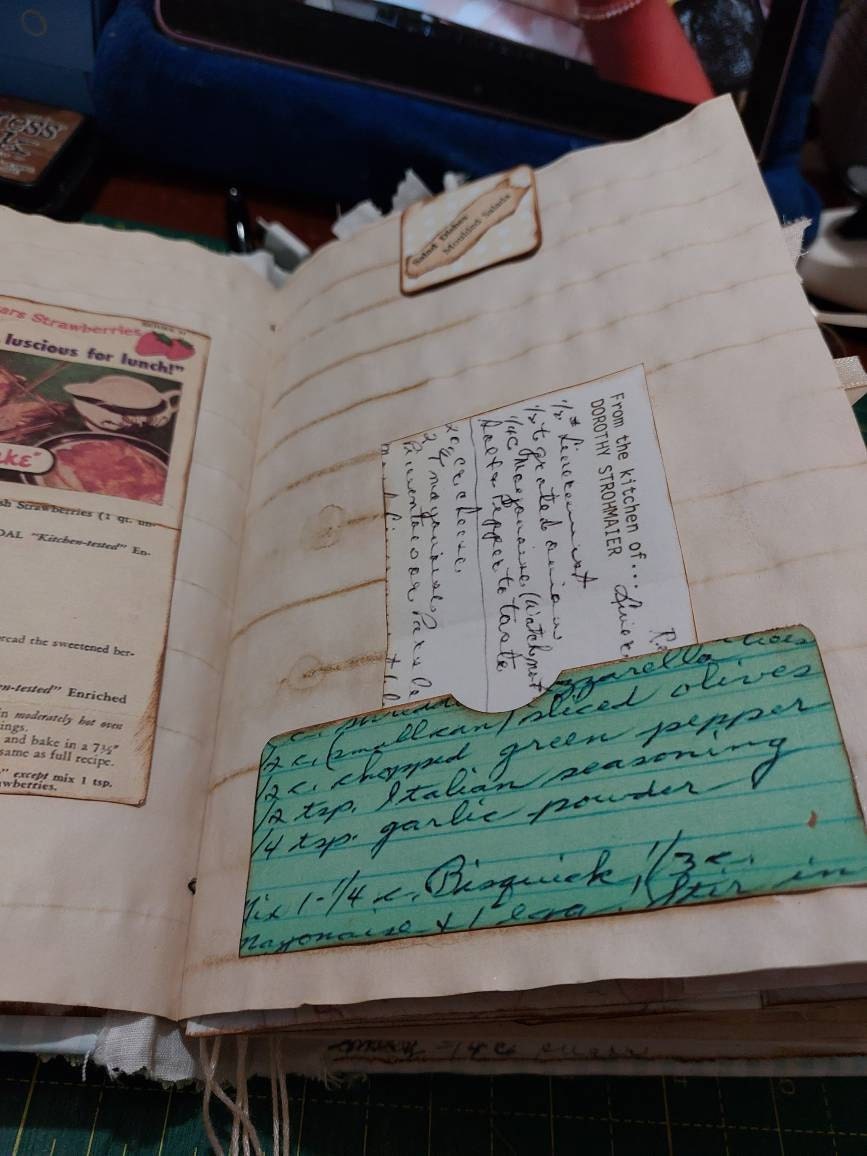 ress
ars Strawberries
luscious for lunch!"
AKE"
sh Strawberries (1 qt. un-
DAL "Kitchen-tested" En-
read the sweetened ber-
en-tested" Enriched
in moderately hot oven
ings.
and bake in a 7½"
same as full recipe.
" except mix 1 tsp.
wberries.
Salad Dishes
Moulded Salads
From the kitchen of...
DOROTHY STROHMAIER
1/2 # Liverwurst
1/2 t grated onion
1/4 c Mayonaise (Watch not
Salt & Pepper to taste
cr cheese
2 T mayonaise
Pimentoes or Parsle
1/2 c. (small can) sliced olives
1/2 c. chopped green pepper
1/2 tsp. Italian seasoning
1/4 tsp. garlic powder
Mix 1-1/4 c. Bisquick, 1/3 c.
Mayonaise + 1 egg. Stir in